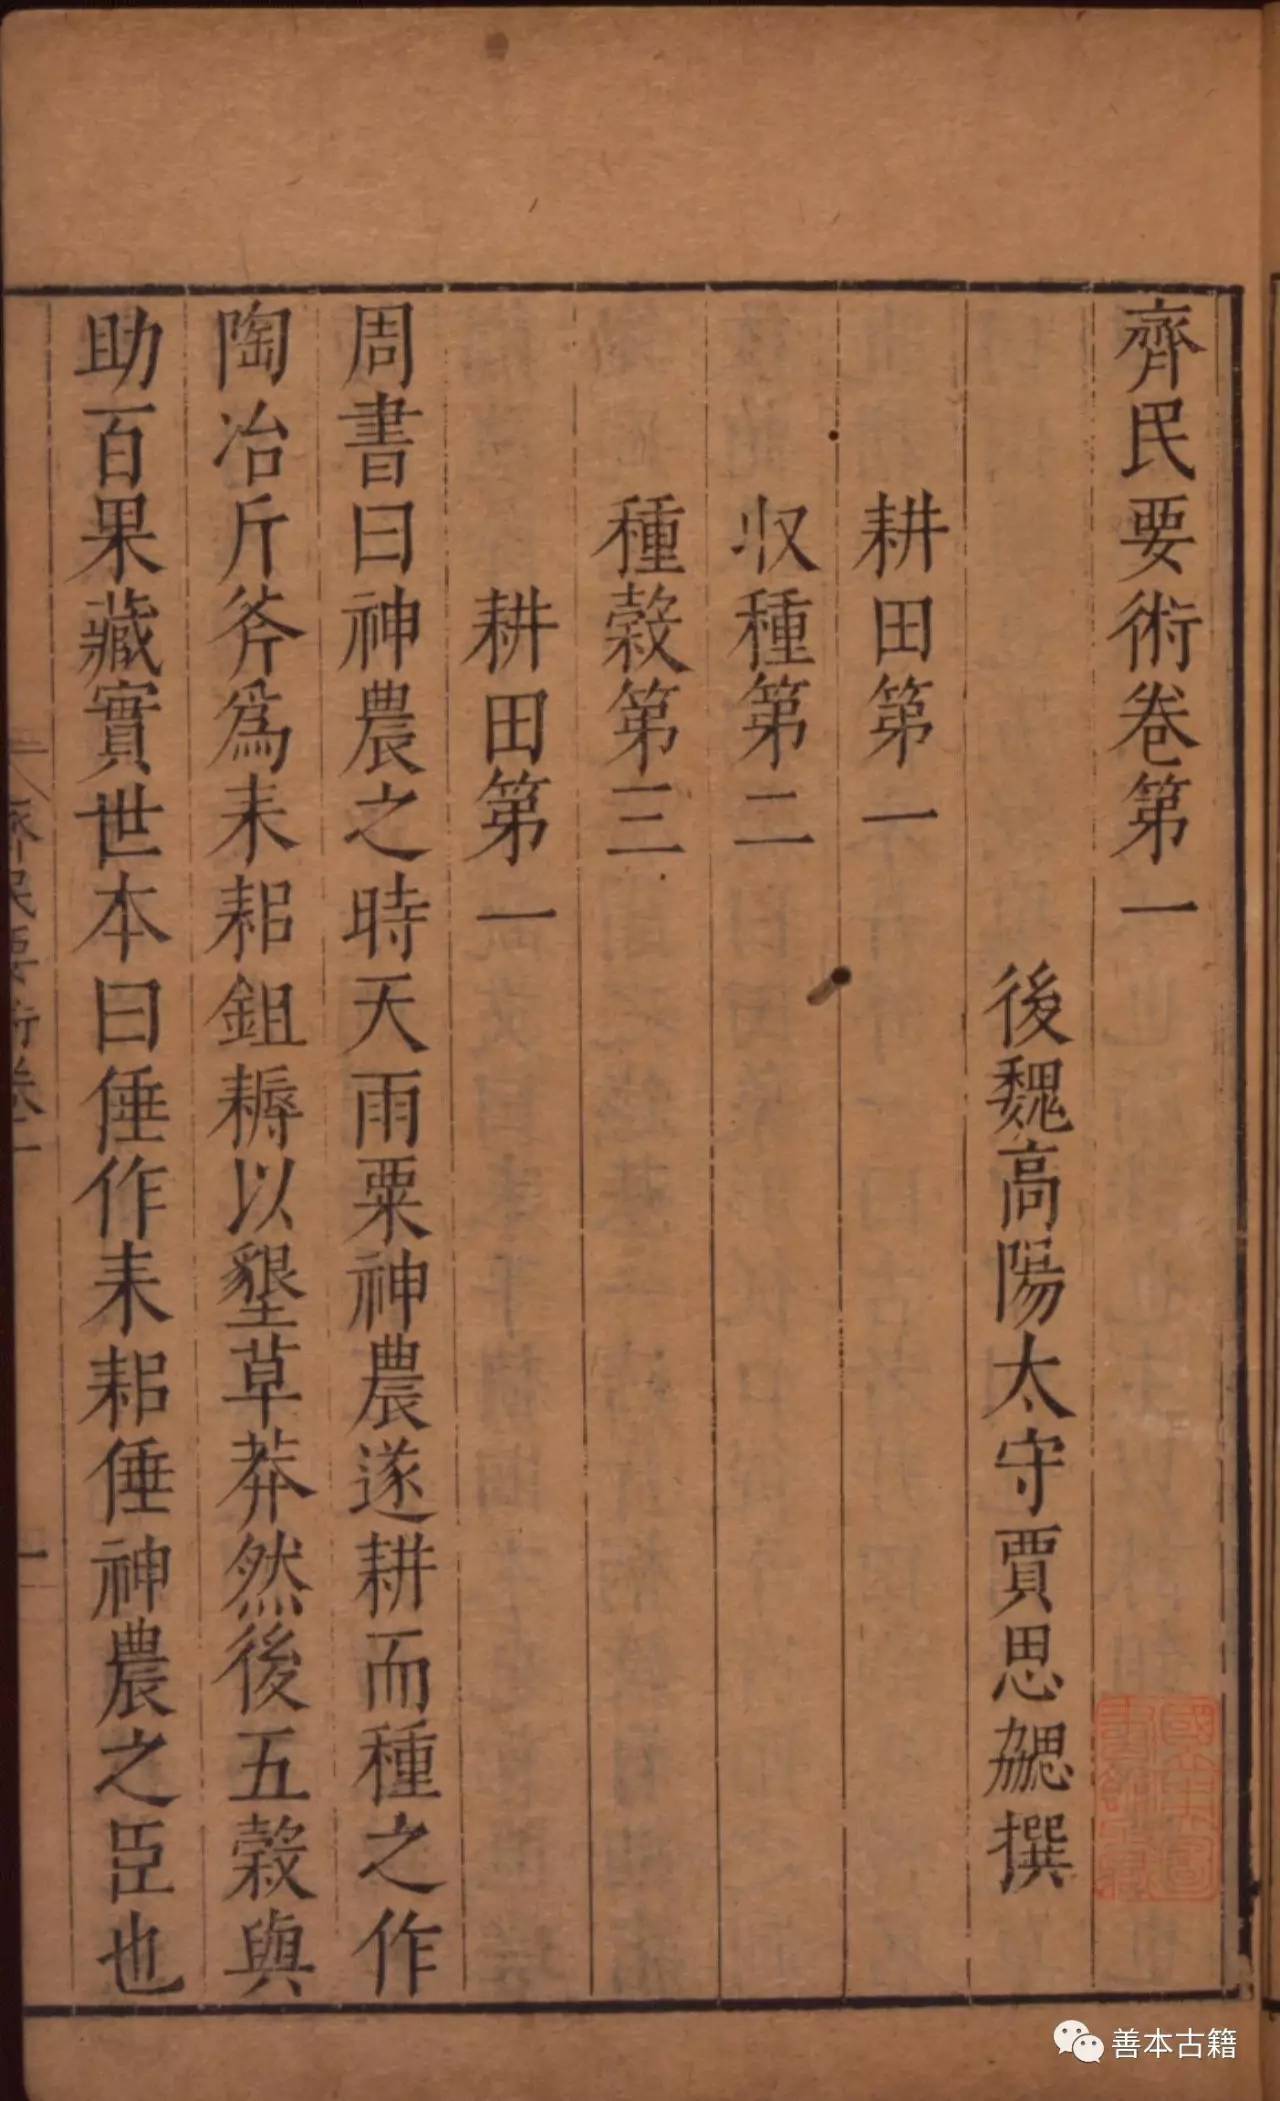 齊民要術卷第一
後魏高陽太守賈思勰撰
耕田第一
收種第二
種穀第三
耕田第一
周書曰神農之時天雨粟神農遂耕而種之作
陶冶斤斧爲耒耜鉏耨以墾草莽然後五穀與
助百果藏實世本曰倕作耒耜倕神農之臣也
齊民要術卷一
一
善本古籍